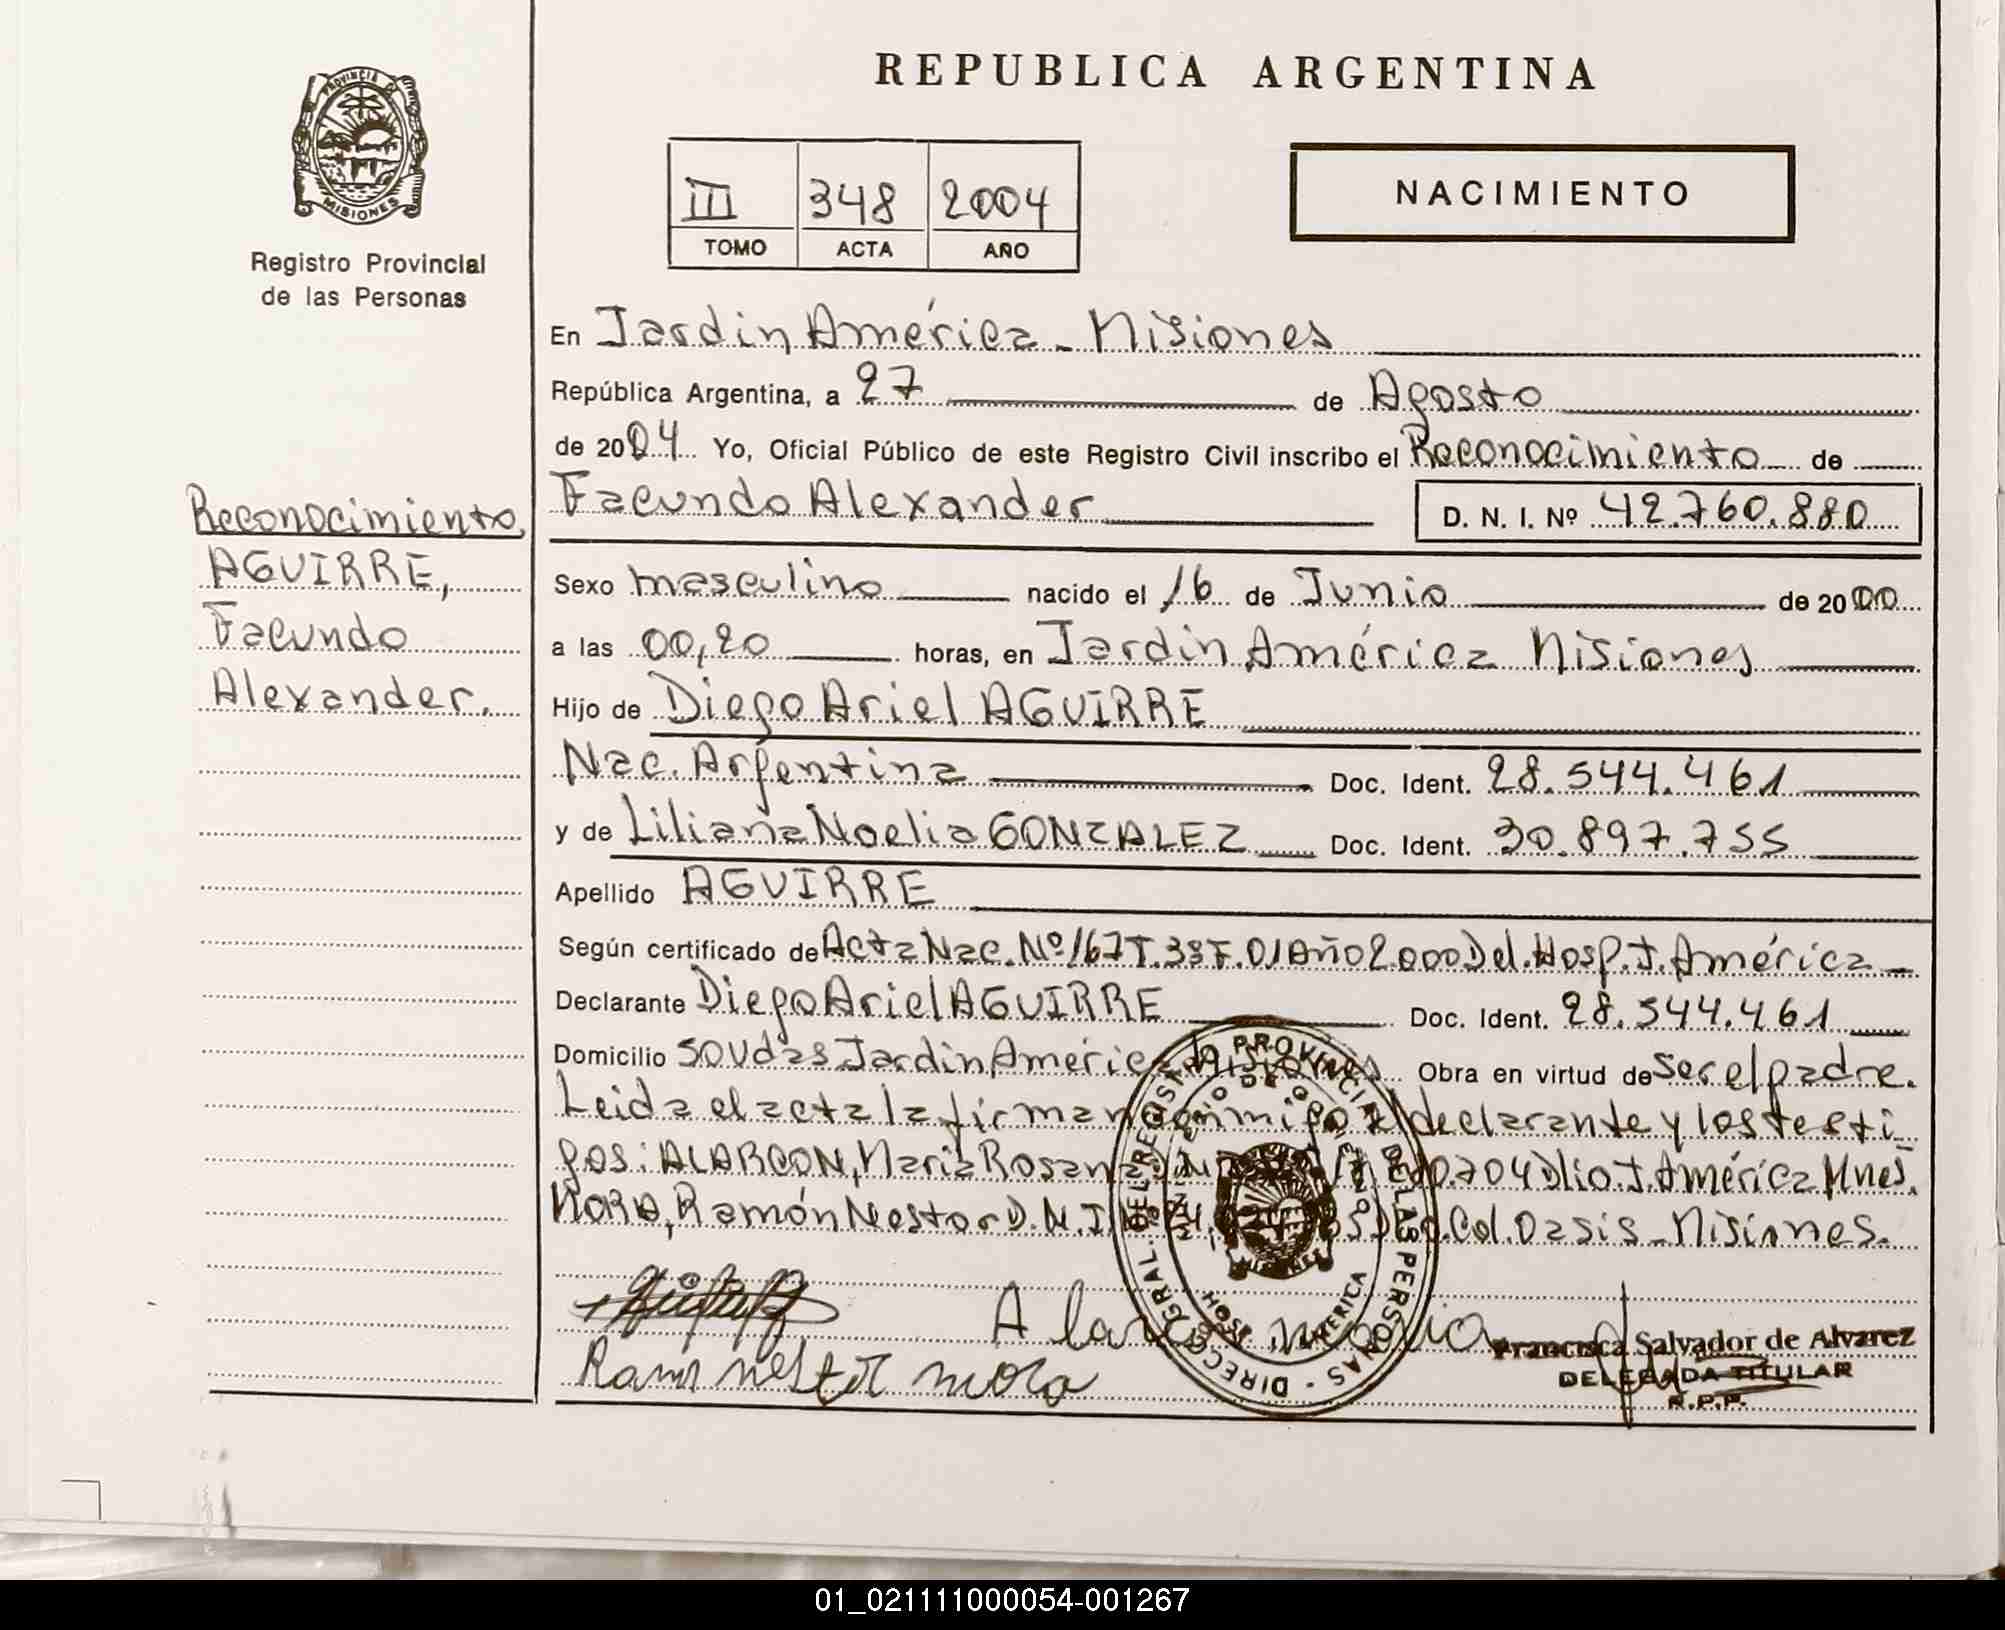 REPUBLICA ARGENTINA
PROVINCIA DE
MISIONES
Registro Provincial
de las Personas
III 348 2004
TOMO ACTA AÑO
NACIMIENTO
En Jardin América - Misiones
República Argentina, a 27 de Agosto
de 2004 Yo, Oficial Público de este Registro Civil inscribo el Reconocimiento de
Facundo Alexander D. N. I. Nº 42.760.880
Reconocimiento
AGUIRRE,
Facundo
Alexander.
Sexo masculino nacido el 16 de Junio de 2000
a las 00,20 horas, en Jardin América Misiones
Hijo de Diego Ariel AGUIRRE
Nac. Argentina Doc. Ident. 28.544.461
y de Liliana Noelia GONZALEZ Doc. Ident. 30.897.755
Apellido AGUIRRE
Según certificado de Acta Nac. Nº 167 T. 3 F. 01 Año 2.000 Del. Hosp. J. América -
Declarante Diego Ariel AGUIRRE Doc. Ident. 28.544.461
Domicilio SOUdas Jardin América Misiones Obra en virtud de Ser el padre.
Leida el acta la firman conmigo el declarante y los testi-
gos: ALARCON, Maria Rosana 704 Dlio. J. América Mnes.
MORA, Ramón Nestor D.N.I. Col. Oasis - Misiones.
DIRECC. GRAL. DEL REGISTRO PROVINCIAL DE LAS PERSONAS
HOSP. AMERICA
MISIONES
Alarcon Maria
Ramon nestor mora
Francisca Salvador de Alvarez
DELEGADA TITULAR
R.P.P.
01_021111000054-001267